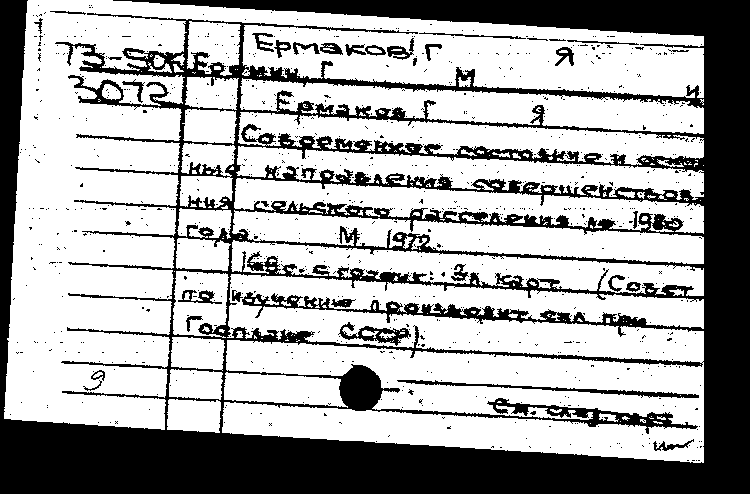 Ермаков, Г Я
73-50К Еремин, Г М и
3072 Ермаков, Г Я
Современное состояние и основ
ные направления совершенствова
ния сельского расселения до 1980
года. М. 1972.
168 с. с график.; 3 л. карт (Совет
по изучению производит. сил при
Госплане СССР).
9
См. след. карт